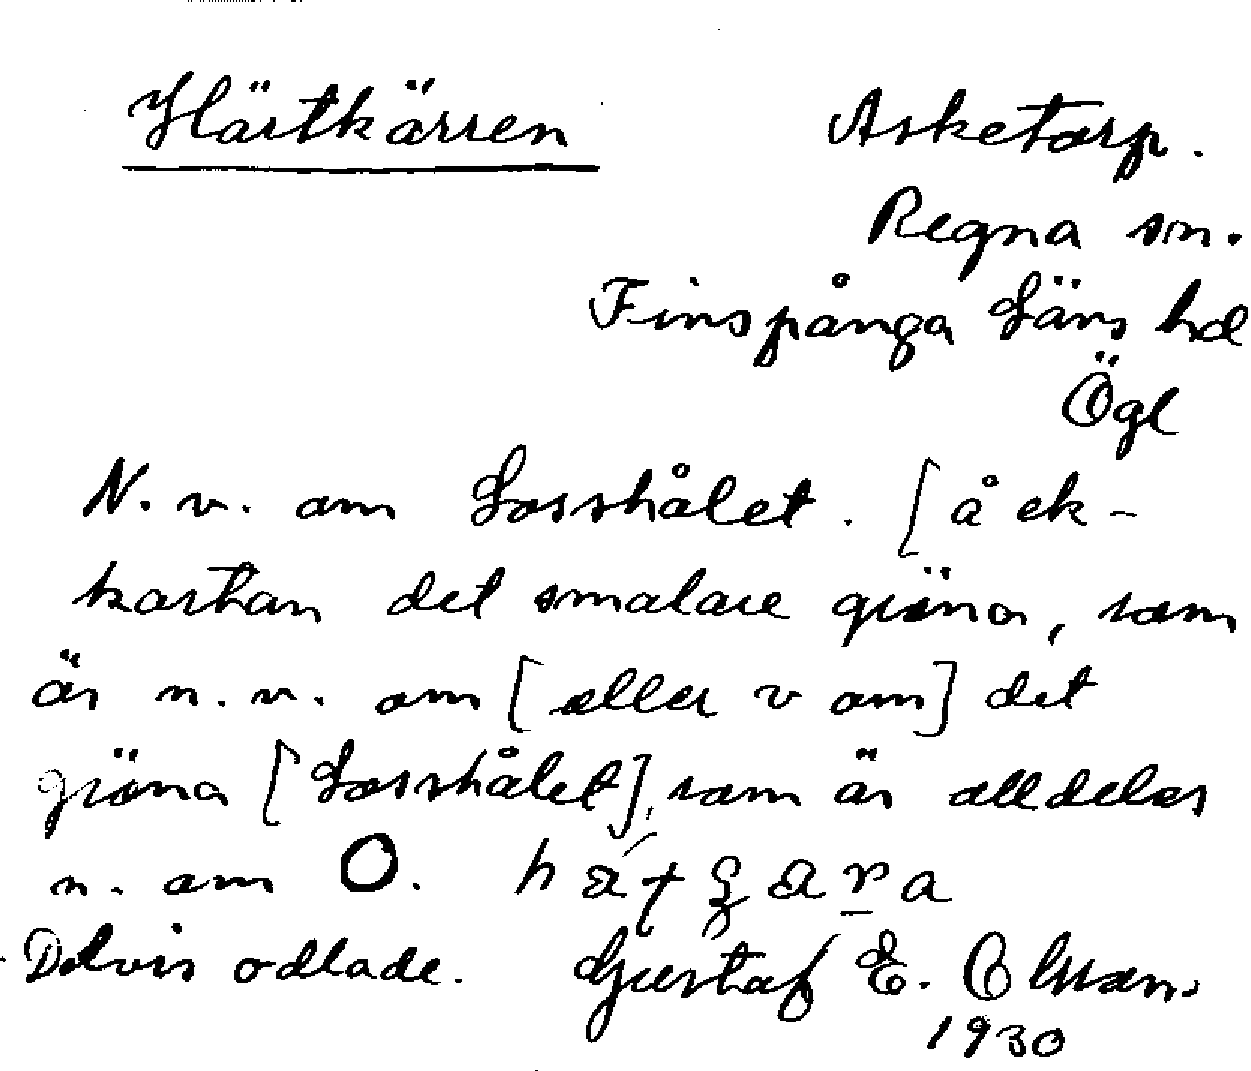 Härtkärren
Asketorp.
Regna sn.
Finspånga Läns hd
Ögl
N. v. om Losshålet. [å ek-
kartan det smalare gröna, som
är n. v. om [eller v om] det
gröna [Losshålet], som är alldeles
n. om O.
Delvis odlade. Gustaf E.
1930